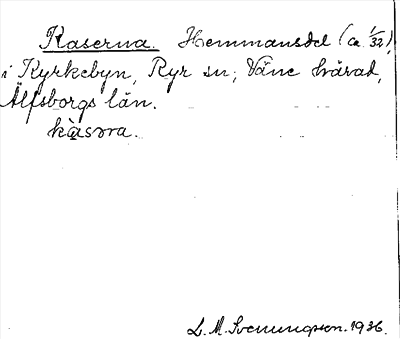 Kaserna. Hemmansdel (ca 1/32),
i Kyrkebyn, Ryr sn; Väne härad,
Älfsborgs län.
kàsəra.
L. M. Svenungsson. 1936.